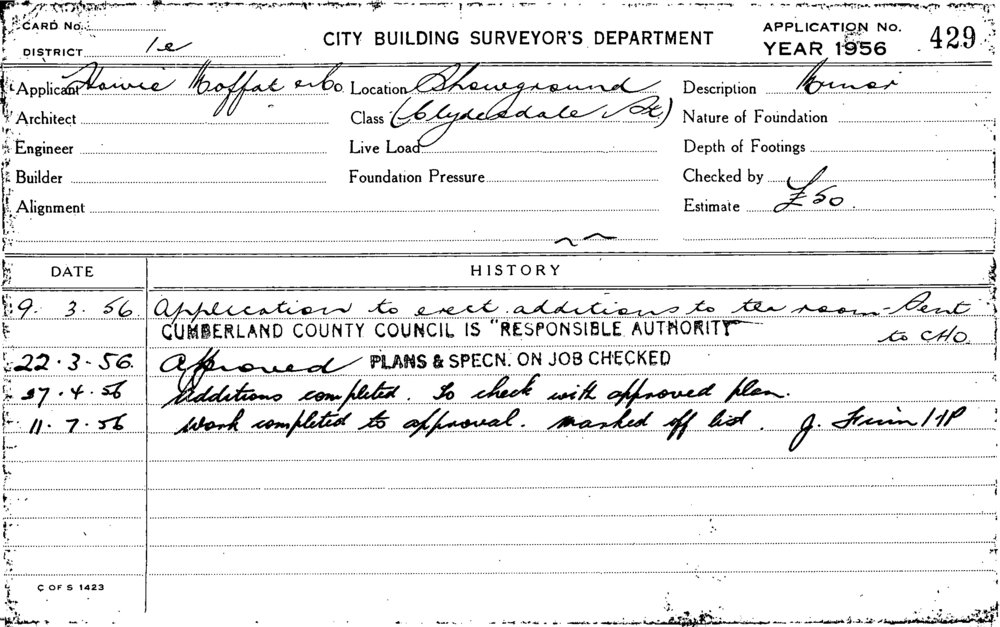 CARD No.
DISTRICT 1e
CITY BUILDING SURVEYOR'S DEPARTMENT
APPLICATION No. 429
YEAR 1956
Applicant Howie Moffat & Co Location Showground Description Minor
Architect Class (Clydesdale St) Nature of Foundation
Engineer Live Load Depth of Footings
Builder Foundation Pressure Checked by
Alignment Estimate £50
DATE HISTORY
9. 3. 56. Application to erect additions to tea room - Sent
to CHO.
CUMBERLAND COUNTY COUNCIL IS "RESPONSIBLE AUTHORITY"
22.3.56. Approved PLANS & SPECN. ON JOB CHECKED
27.4.56 Additions completed. To check with approved plan.
11.7.56 Work completed to approval. marked off list. J.
C OF S 1423